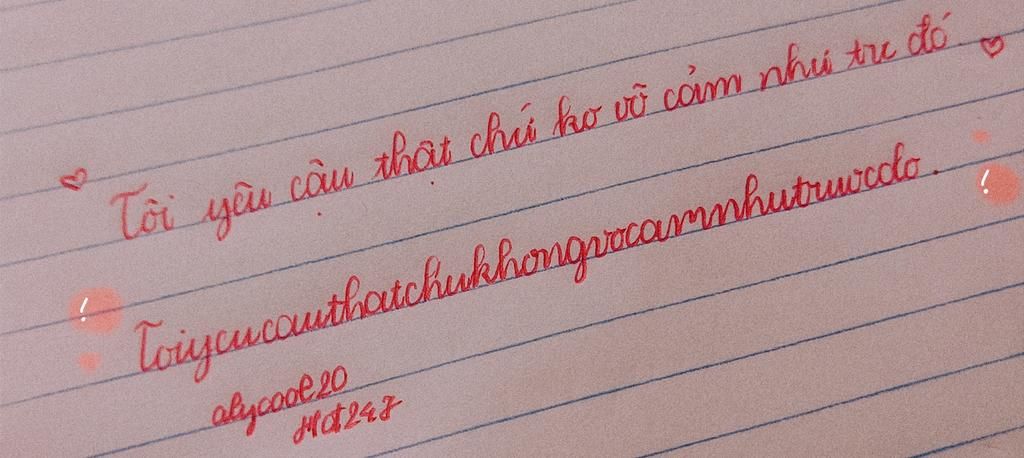 Tôi yêu câu thật chứ ko vô cảm như trc đó
Toiyeucauthatchukhongvocamnhutruocdo.
alycool20
Hd247